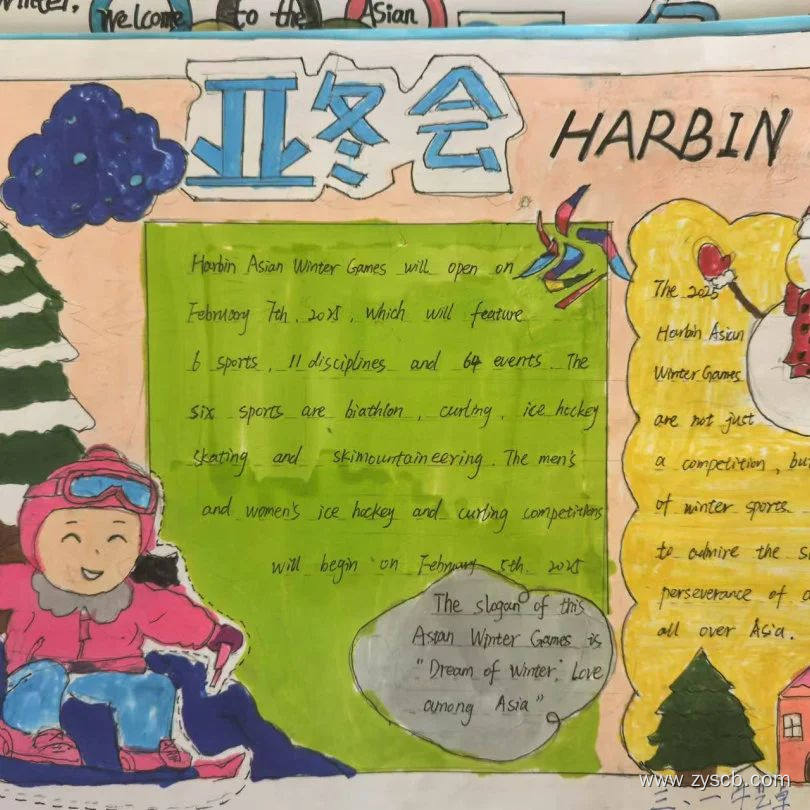 winter.
Welcome
to the
Asian
亚冬会
HARBIN
Harbin Asian Winter Games will open on
February 7th, 2025, which will feature
6 sports, 11 disciplines and 64 events. The
six sports are biathlon, curling, ice hockey
skating and skimountaineering. The men's
and women's ice hockey and curling competitions
will begin on February 5th 2025
The slogan of this
Asian Winter Games is
"Dream of Winter, Love
among Asia"
The 2025
Harbin Asian
Winter Games
are not just
a competition, but
of winter sports
to admire the
perseverance of
all over Asia.
www.zyscb.com
三、二